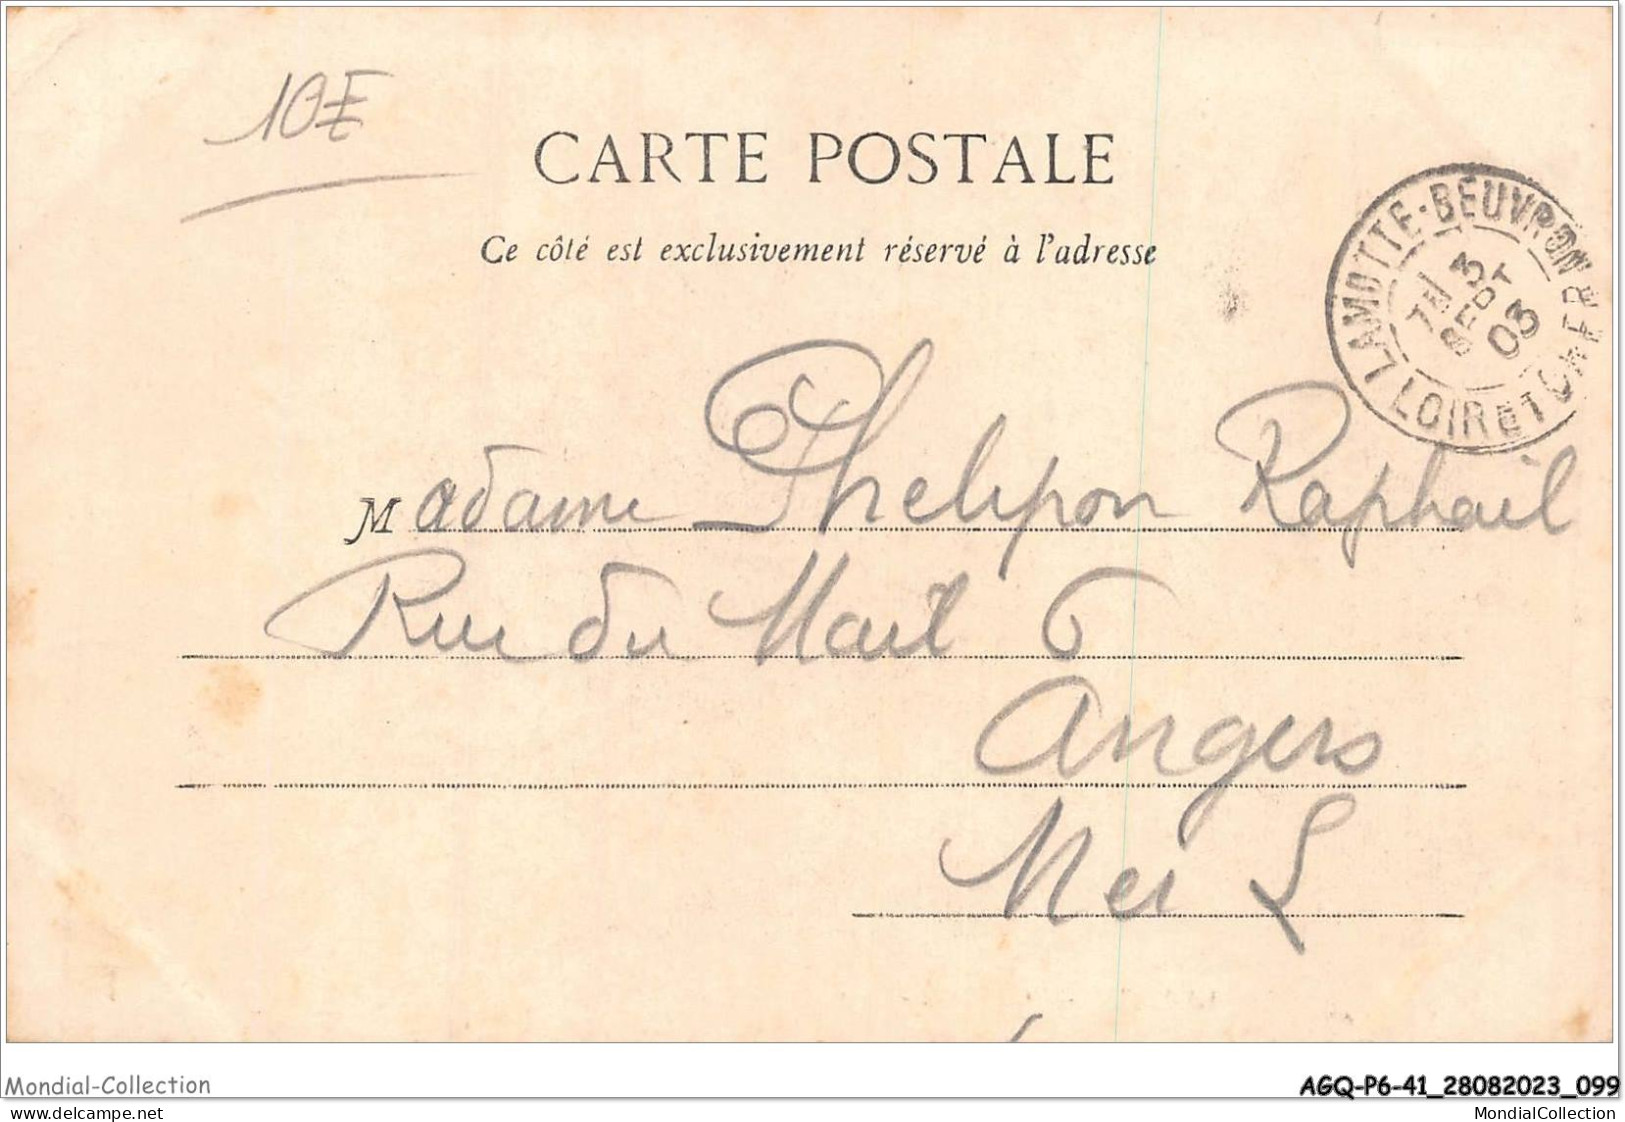 10E
CARTE POSTALE
Ce côté est exclusivement réservé à l'adresse
LAMOTTE-BEUVRON
3
SEPT
03
LOIR ET CHER
Madame Phelipon Raphaël
Rue du Mail 6
Angers
M et L
Mondial-Collection
AGQ-P6-41_28082023_099
www.delcampe.net
MondialCollection